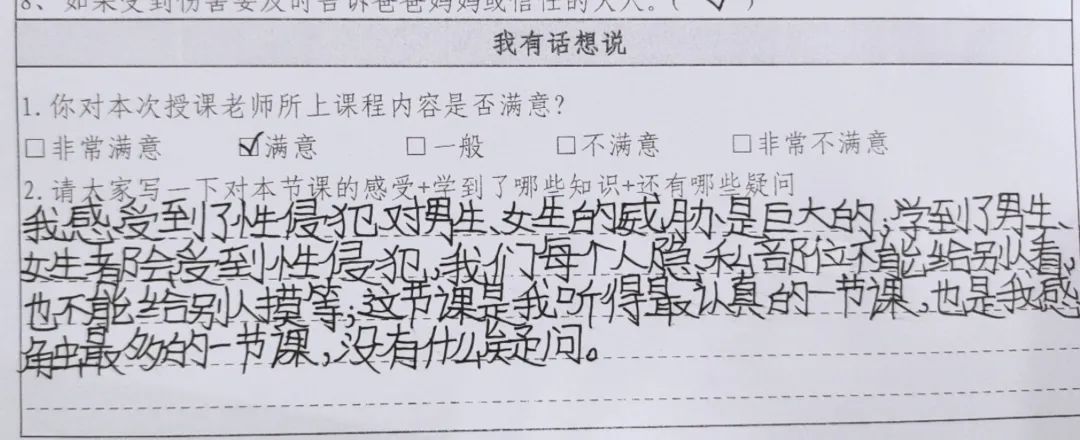 8、如果受到伤害要及时告诉爸爸妈妈或信任的大人。(√)
我有话想说
1. 你对本次授课老师所上课程内容是否满意?
□非常满意 ☑满意 □一般 □不满意 □非常不满意
2. 请大家写一下对本节课的感受+学到了哪些知识+还有哪些疑问
我感受到了性侵犯对男生、女生的威胁是巨大的;学到了男生、
女生都会受到性侵犯,我们每个人隐私部位不能给别人看,
也不能给别人摸等;这节课是我听得最认真的一节课,也是我感
触最多的一节课,没有什么疑问。